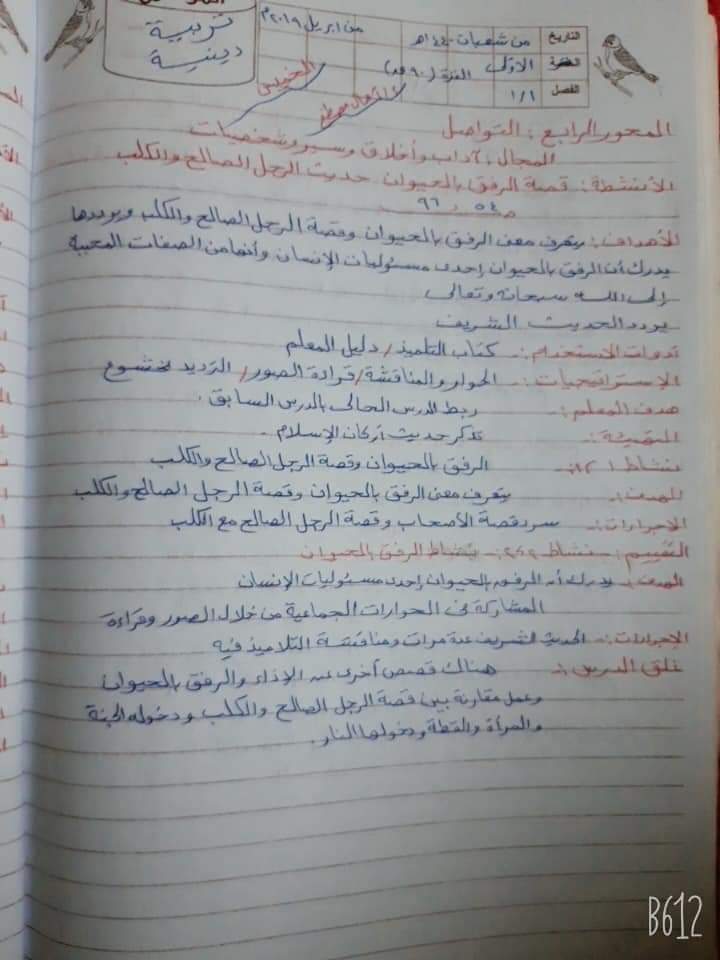 تربية
دينية
التاريخ من شعبان ١٤٤٠هـ من ابريل ٢٠١٩م
الفترة الأولى الفترة (٩٠ ق)
الفصل ١/١
الخميس
المحور الرابع : التواصل
المجال : آداب وأخلاق وسير وشخصيات
الأنشطة : قصة الرفق بالحيوان حديث الرجل الصالح والكلب
الأهداف : يتعرف معنى الرفق بالحيوان وقصة الرجل الصالح والكلب ويرددها
يدرك أن الرفق بالحيوان إحدى مسئوليات الإنسان وأنها من الصفات المحببة
إلى الله سبحانه وتعالى
يردد الحديث الشريف
أدوات الاستخدام :- كتاب التلميذ / دليل المعلم
الإستراتيجيات :- الحوار والمناقشة / قراءة الصور / الترديد بخشوع
هدف المعلم :- ربط الدرس الحالى بالدرس السابق .
التهيئة :- تذكر حديث أركان الإسلام .
نشاط ١ :- الرفق بالحيوان وقصة الرجل الصالح والكلب
الهدف :- يتعرف معنى الرفق بالحيوان وقصة الرجل الصالح والكلب
الإجراءات :- سرد قصة الأصحاب وقصة الرجل الصالح مع الكلب
التقييم :- نشاط ٢ :- الرفق بالحيوان
الهدف :- يدرك أن الرفق بالحيوان إحدى مسئوليات الإنسان
المشاركة فى الحوارات الجماعية من خلال الصور وقراءة
الإجراءات :- الحديث الشريف عدة مرات ومناقشة التلاميذ فيه
غلق الدرس :- هناك قصص أخرى عن الإذاء والرفق بالحيوان
وعمل مقارنة بين قصة الرجل الصالح والكلب ودخوله الجنة
والمرأة والقطة ودخولها النار .
B612